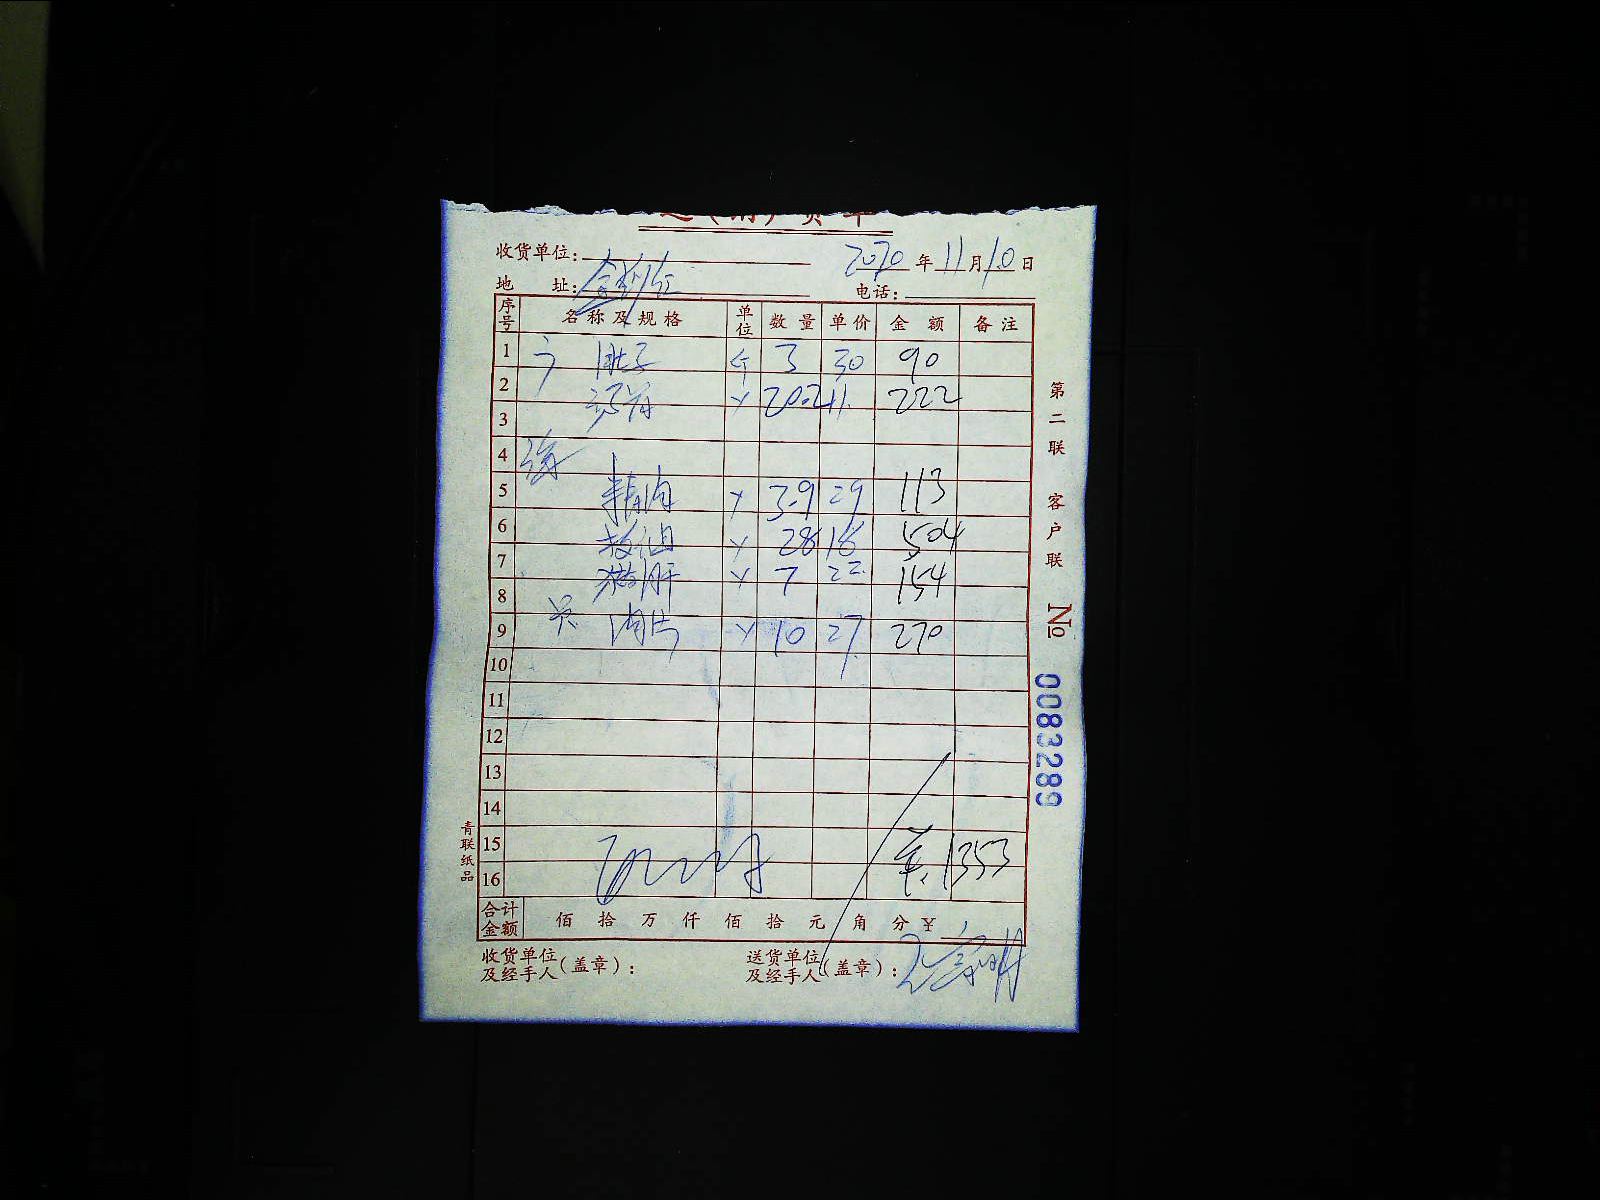 送(销)货单
收货单位:
2020年11月10日
地 址:
电话:
序号 名称及规格 单位 数量 单价 金额 备注
1 肚子 个 3 30 90
2 20.2 11 222
3
4
5 精肉 3.9 29 113
6 板油 28 18 504
7 猪肝 7 22 154
8
9 肉片 10 27 270
10
11
12
13
14
15 1353
16
合计金额 佰 拾 万 仟 佰 拾 元 角 分 ¥
收货单位及经手人(盖章):
送货单位及经手人(盖章):
第二联 客户联
No 0083289
青联纸品